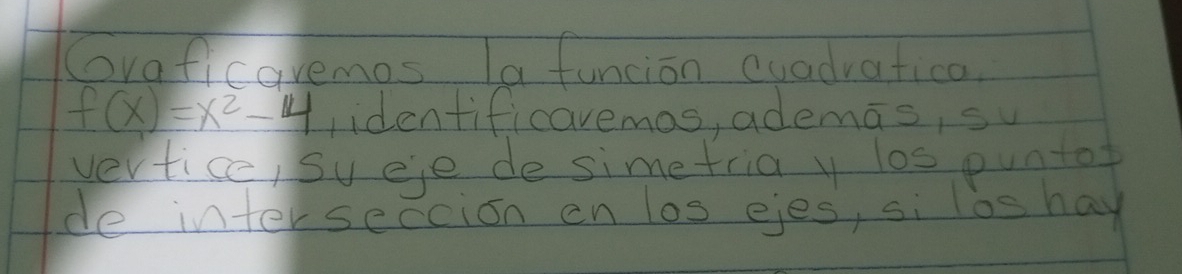 Graficaremos la función cuadratica.
f(x)=x²-4, identificaremos, además, su
vertice, su eje de simetria y los puntos
de intersección en los ejes, si los hay